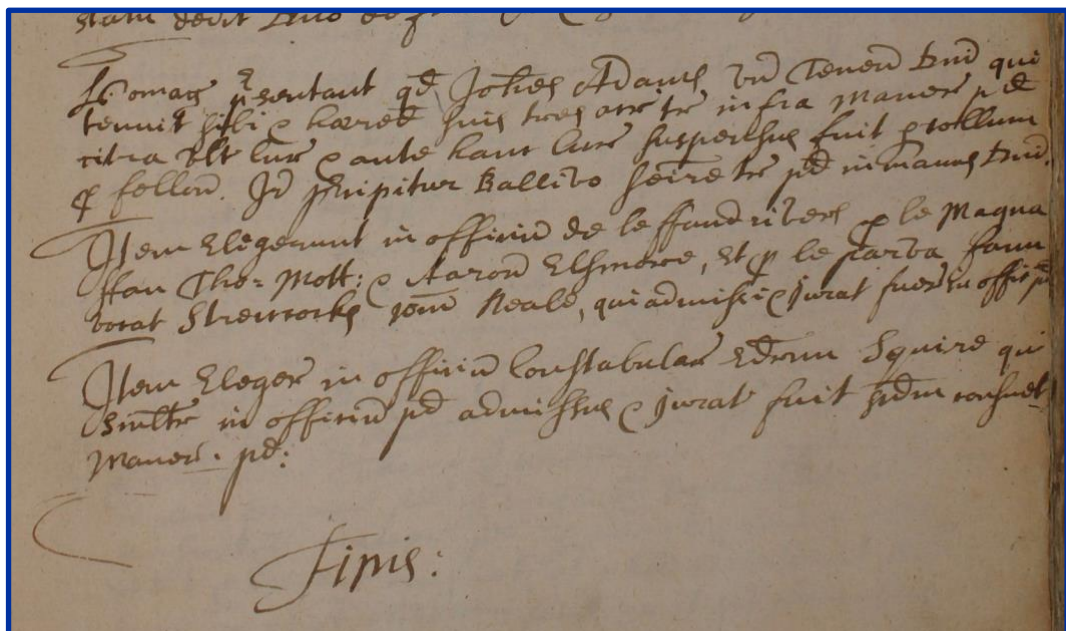 stam dedit Dno de
Homag p̄sentant qd Johes Adams un Tenen Dni qui
tenuit sibi & haered suis tres acr tr infra Maner pd
citra ult Cur & ante hanc Cur suspensus fuit p collum
p fellon. Id p̄cipitur Ballivo seire tr pd in manus Dni.
Item Elegerunt in officiu de le ffandrivers p le Magna
ffan Tho: Mott: & Aaron Elsmore, Et p le parva fann
vocat Streetcorks Neale, qui admissi & jurat fuer in offic p
Item Eleger in officiu Constabular Edrum Squire qui
Simltr in officiu pd admissus & jurat fuit sedm consuet
Maner. pd:
Finis: